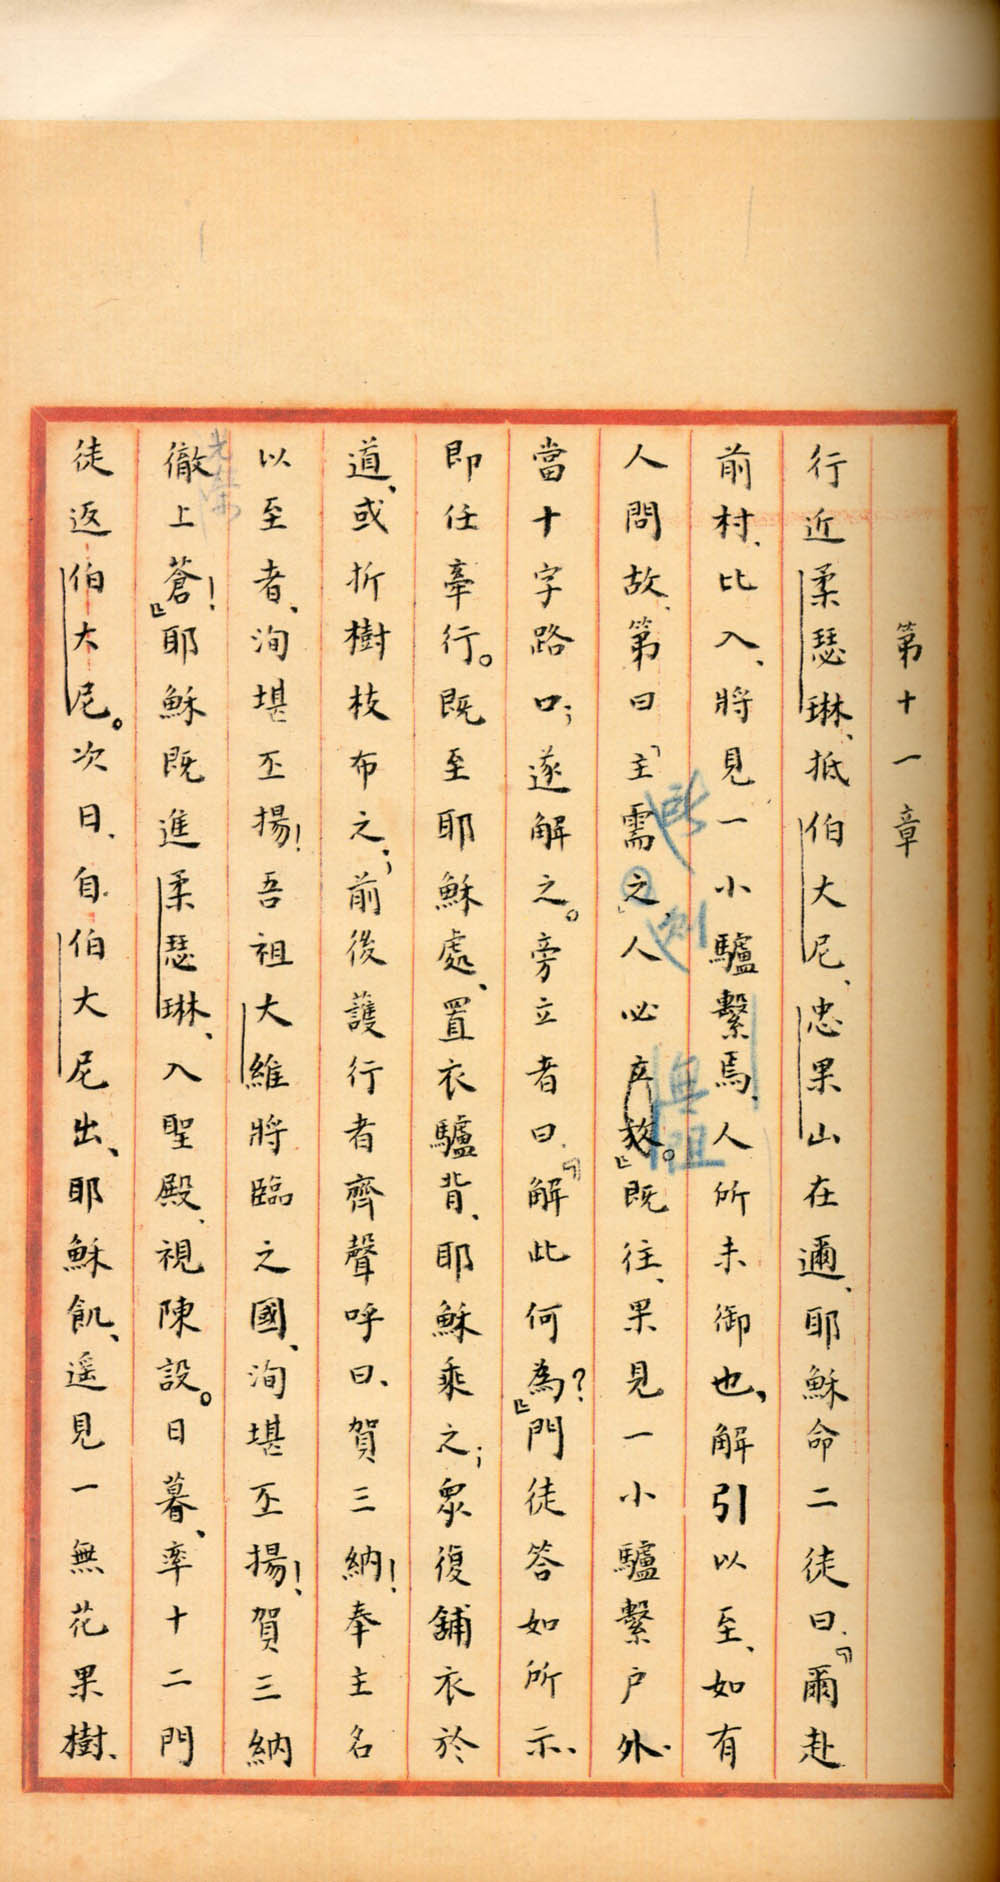 第十一章
行近柔瑟琳、抵伯大尼、忠果山在邇、耶穌命二徒曰、『爾赴
前村、比入、將見一小驢繫焉、人所未御也、解引以至、如有
人問故、第曰「主需之」人必立放。』既往、果見一小驢繫户外、
當十字路口；遂解之。旁立者曰、『解此何為？』門徒答如所示、
即任牽行。既至耶穌處、置衣驢背、耶穌乘之；眾復舖衣於
道、或折樹枝布之；前後護行者齊聲呼曰、賀三納！奉主名
以至者、洵堪丕揚！吾祖大維將臨之國、洵堪丕揚！賀三納
徹上蒼！』耶穌既進柔瑟琳、入聖殿、視陳設。日暮、率十二門
徒返伯大尼。次日、自伯大尼出、耶穌飢、遥見一無花果樹、
光榮
則
無阻